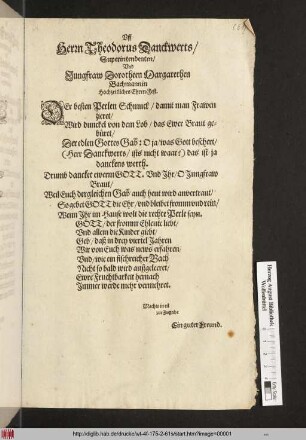 Uff
Herrn Theodorus Danckwerts/
Superintendenten/
Und
Jungfraw Dorotheen Margarethen
Bachmannin
Hochzeitliches Ehren-Fest.
DEr besten Perlen Schmuck/ damit man Frawen
zieret/
Wird dunckel von dem Lob/ das Ewer Braut ge-
büret/
Der edlen Gottes Gab: O ja/ was Gott beschert/
(Herr Danckwerts/ ists nicht waar?) das ist ja
danckens werth.
Drumb dancket ewerm GOTT. Und Ihr/ O Jungfraw
Braut/
Weil Euch dergleichen Gab auch heut wird anvertraut/
So gebet GOTT die Ehr/ und bleibet from und rein/
Wenn Ihr im Hause wolt die rechte Perle seyn.
GOTT/ der fromme Eheleute liebt/
Und allein die Kinder giebt/
Geb/ daß in drey viertel Jahren
Wir von Euch was newes erfahren:
Und/ wie ein fischreicher Bach
Nicht so bald wird außgeleeret/
Ewre Fruchtbarkeit hernach
Immer werde mehr vermehret.
Machts in eil
zur Zugabe
Ein guter Freund.
Herzog August Bibliothek
Wolfenbüttel
http://diglib.hab.de/drucke/xl-4f-175-2-61s/start.htm?image=00001